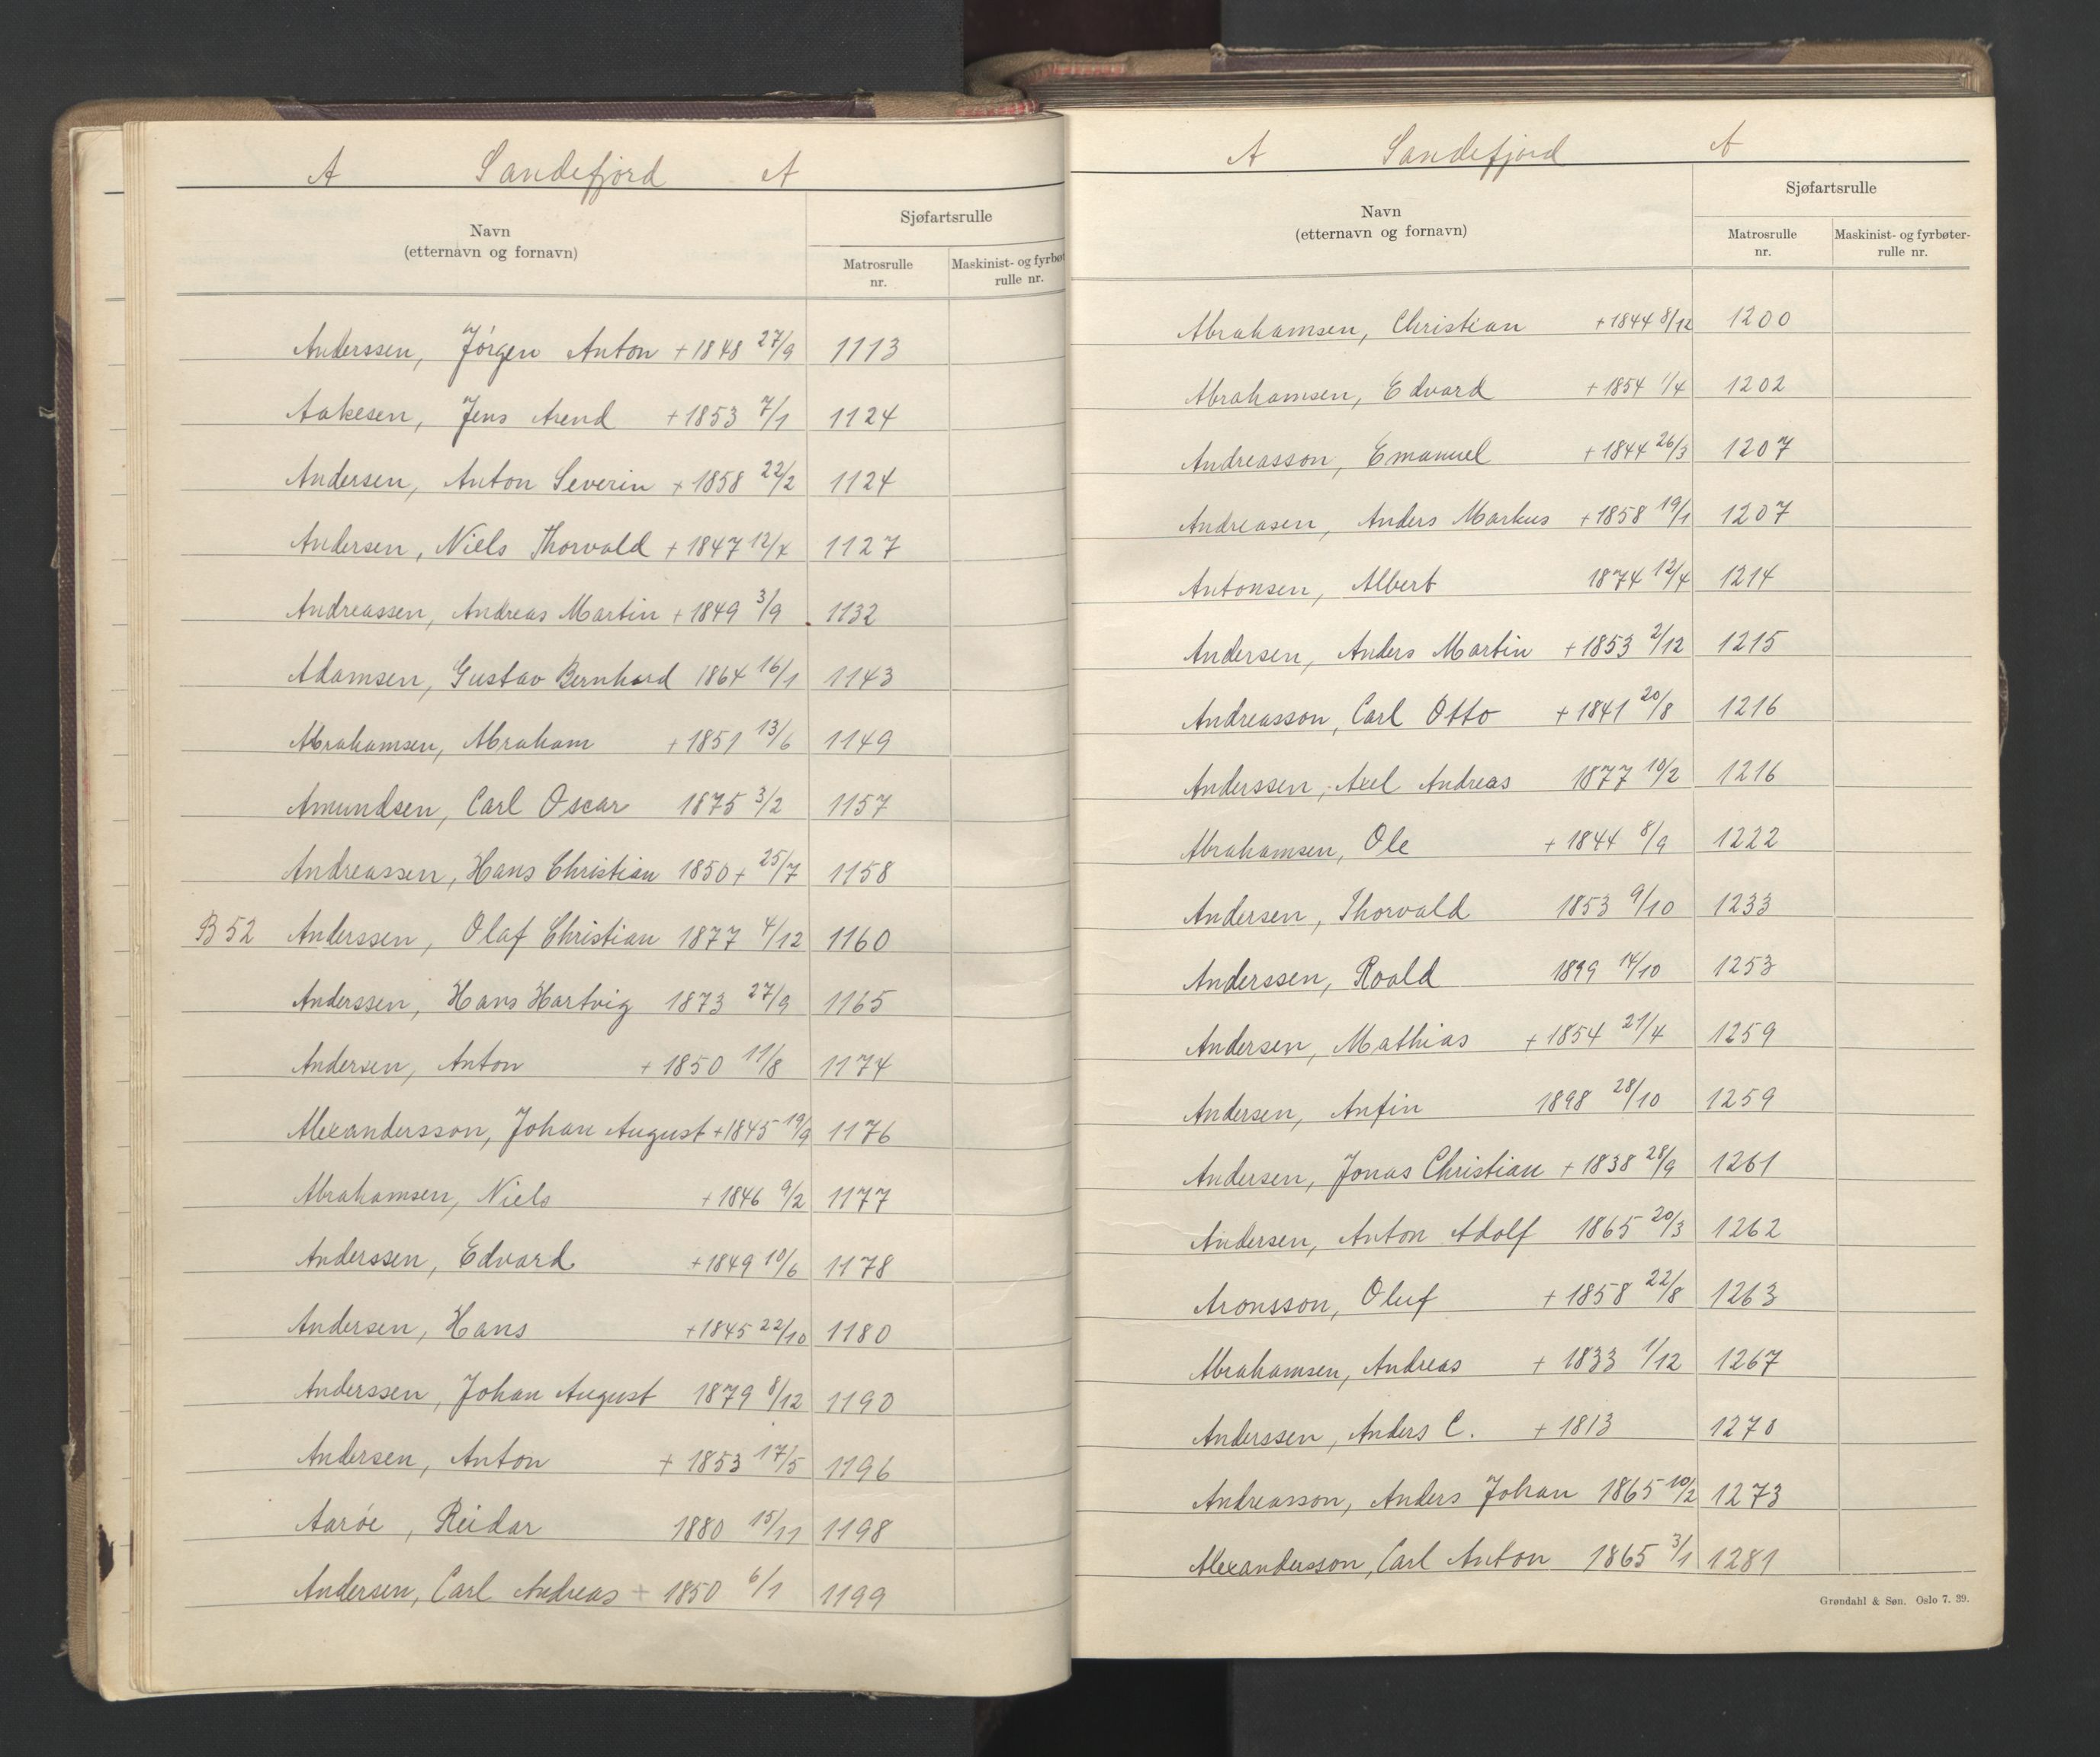 A Sandefjord A
Navn
(etternavn og fornavn)
Sjøfartsrulle
Matrosrulle
nr.
Maskinist- og fyrbøt
rulle nr.
Anderssen, Jörgen Anton + 1848 27/9 1113
Aakesen, Jens Arend + 1853 7/1 1124
Andersen, Anton Severin + 1858 22/2 1124
Andersen, Niels Thorvald + 1847 12/4 1127
Andreassen, Andreas Martin + 1849 3/9 1132
Adamsen, Gustav Bernhard 1864 16/1 1143
Abrahamsen, Abraham + 1851 13/6 1149
Amundsen, Carl Oscar 1875 3/2 1157
Andreassen, Hans Christian 1850 + 25/7 1158
B 52 Anderssen, Olaf Christian 1877 4/12 1160
Anderssen, Hans Hartvig 1873 27/9 1165
Andersen, Anton + 1850 11/8 1174
Alexandersson, Johan August + 1845 19/9 1176
Abrahamsen, Niels + 1846 9/2 1177
Anderssen, Edvard + 1849 10/6 1178
Andersen, Hans + 1845 22/10 1180
Anderssen, Johan August 1879 8/12 1190
Andersen, Anton + 1853 17/5 1196
Aaröe, Reidar 1880 15/11 1198
Andersen, Carl Andreas + 1850 6/1 1199
A Sandefjord A
Navn
(etternavn og fornavn)
Sjøfartsrulle
Matrosrulle
nr.
Maskinist- og fyrbøter-
rulle nr.
Abrahamsen, Christian + 1844 8/12 1200
Abrahamsen, Edvard + 1854 1/4 1202
Andreasson, Emanuel + 1844 26/3 1207
Andreasen, Anders Markus + 1858 19/1 1207
Antonsen, Albert 1874 12/4 1214
Andersen, Anders Martin + 1853 2/12 1215
Andreasson, Carl Otto + 1841 20/8 1216
Anderssen, Axel Andreas 1877 10/2 1216
Abrahamsen, Ole + 1844 8/9 1222
Andersen, Thorvald 1853 9/10 1233
Anderssen, Roald 1899 14/10 1253
Andersen, Mathias + 1854 21/4 1259
Andersen, Anfin 1898 28/10 1259
Andersen, Jonas Christian + 1838 28/9 1261
Andersen, Anton Adolf 1865 20/3 1262
Aronsson, Oluf + 1858 22/8 1263
Abrahamsen, Andreas + 1833 1/12 1267
Anderssen, Anders C. + 1813 1270
Andreasson, Anders Johan 1865 10/2 1273
Alexandersson, Carl Anton 1865 3/1 1281
Grøndahl & Søn. Oslo 7. 39.